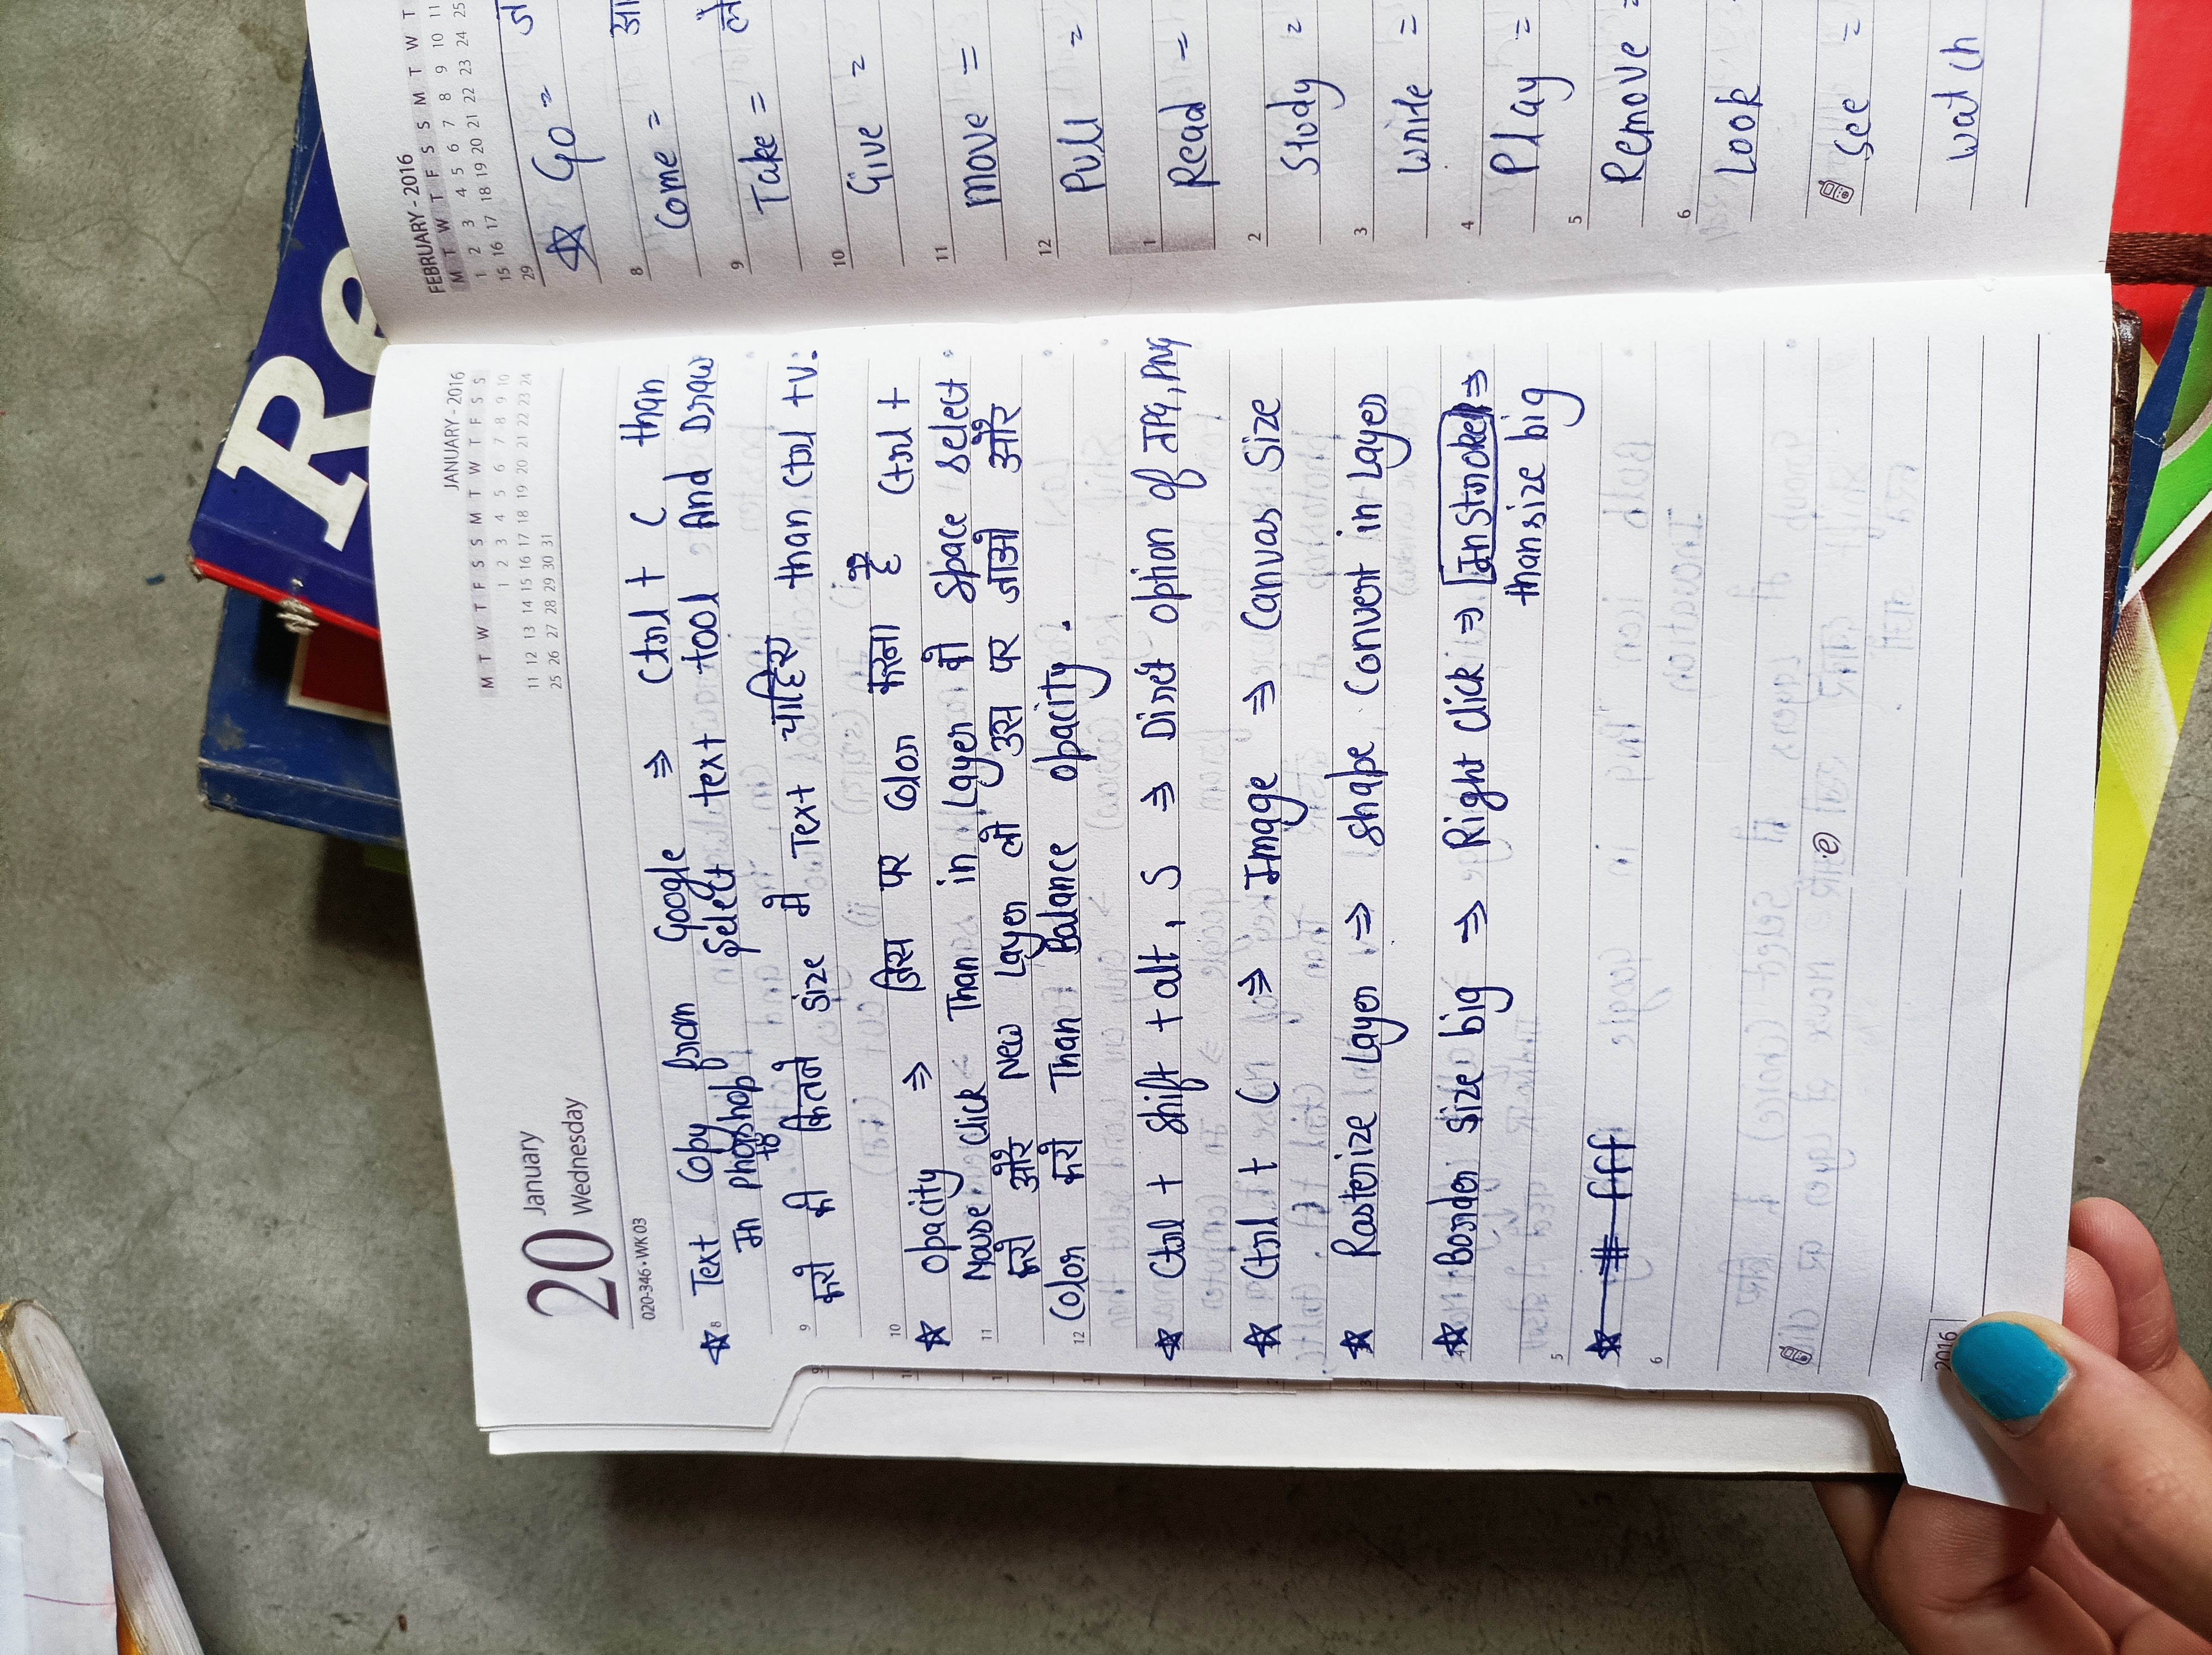 20 January
Wednesday
020-346 • WK 03
JANUARY - 2016
M T W T F S S M T W T F S S
1 2 3 4 5 6 7 8 9 10
11 12 13 14 15 16 17 18 19 20 21 22 23 24
25 26 27 28 29 30 31
8 ☆ Text Copy from Google ⇒ Ctrl + C than
In Photoshop Select text tool And Draw
9 करो की कितने Size में Text चाहिए than Ctrl +V.
10
☆ Opacity ⇒ जिस पर Color करना है Ctrl +
11 Mouse Click Than in Layer की Space Select
करो और New Layer लो उस पर जाओ और
12 Color करो Than Balance Opacity.
☆ Ctrl + Shift + alt, S ⇒ Dirct option of JPG, PNG
☆ Ctrl + C ⇒ Image ⇒ Canvas Size
☆ Rasterize Layer ⇒ Shape Convert in Layer
☆ Border Size big ⇒ Right Click ⇒ In Stroke ⇒
than size big
5
6
2016
FEBRUARY - 2016
M T W T F S S M T W T
1 2 3 4 5 6 7 8 9 10 11
15 16 17 18 19 20 21 22 23 24 25
29
☆ Go =
8 Come =
9 Take =
10 Give =
11 Move =
12 Pull =
1 Read =
2 Study =
3 Write =
4 Play =
5 Remove =
6 Look
See =
watch